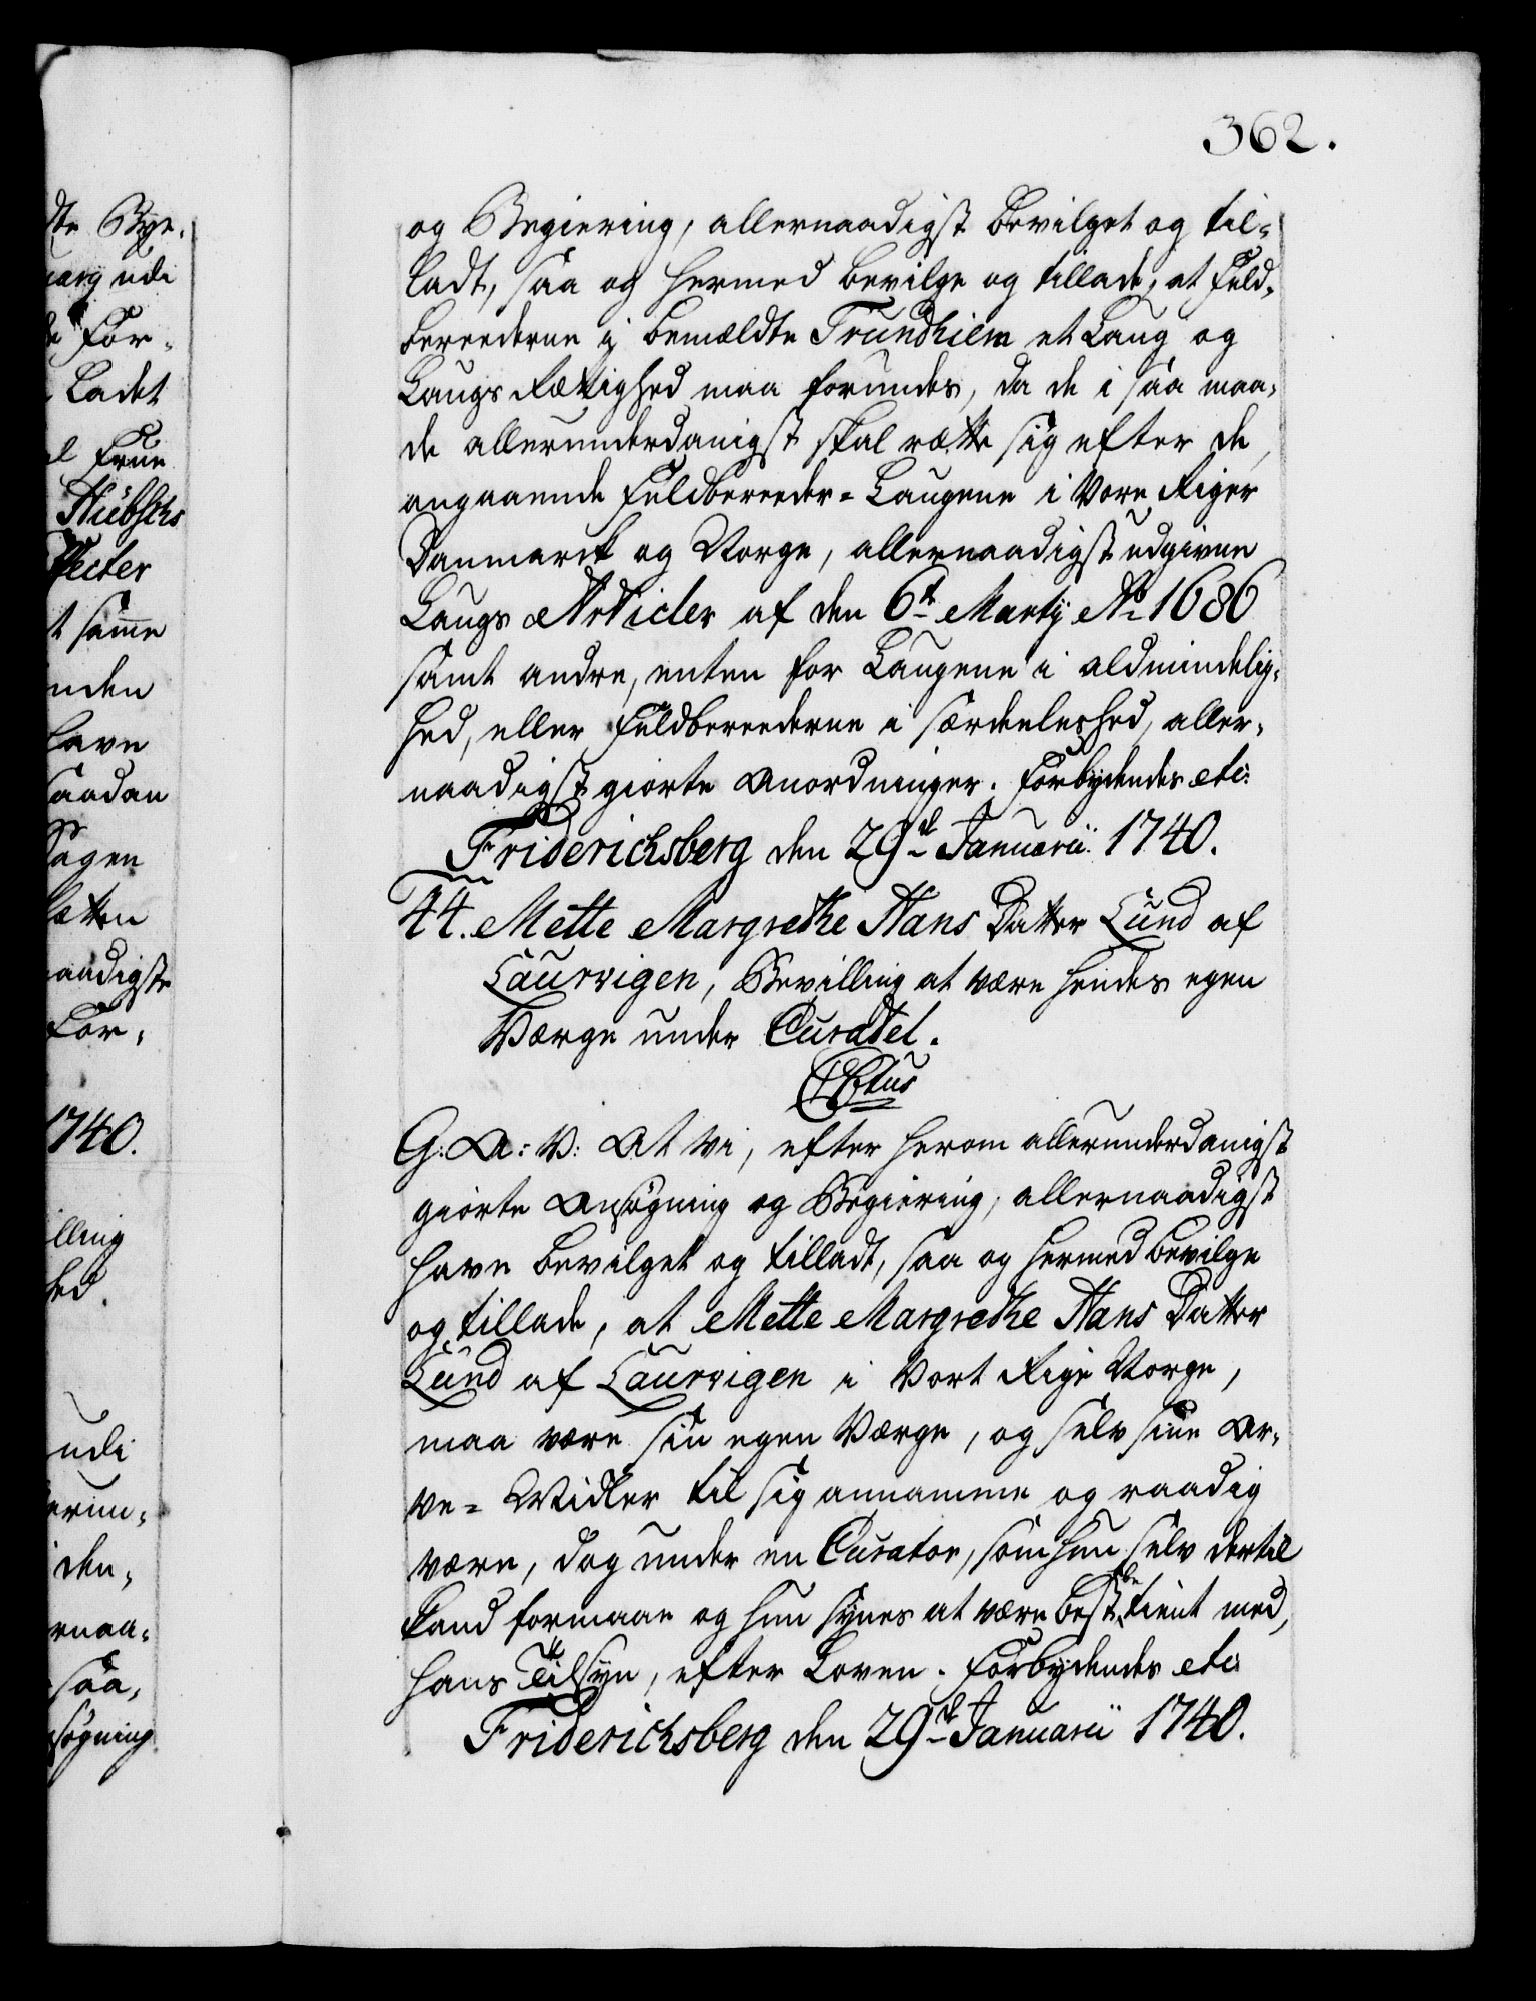 362.
og Begiering, allernaadigst bevilget og til-
ladt, saa og hermed bevilge og tillade, at Feld-
bereederne i bemældte Trundhiem et Laug og
Laugs Rettighed maa forundes, da de i saa maa-
de allerunderdanigst skal rette sig efter de,
angaaende Feldbereeder-Laugene i Vore Riger
Danmarck og Norge, allernaadigst udgivne
Laugs Articler af den 6te Martij Ao 1686
samt andre, enten for Laugene i almindelig-
hed, eller Feldbereederne i særdeleshed, aller-
naadigst giorte Anordninger. Forbydendes etc:
Friderichsberg den 29de Januarii 1740.
44. Mette Margrethe Hans Datter Lund af
Laurvigen, Bevilling at være hendes egen
Værge under Curatel.
G: A: V: At Vi, efter herom allerunderdanigst
giorte Ansøgning og Begiering, allernaadigst
have bevilget og tilladt, saa og hermed bevilge
og tillade, at Mette Margrethe Hans Datter
Lund af Laurvigen i Vort Rige Norge,
maa være sin egen Værge, og selv sine Ar-
ve-Midler til sig annamme og raadig
være, dog under en Curator, som hun selv dertil
kand formaae og hun synes at være best betient med,
hans Tilsyn, efter Loven. Forbydendes etc:
Friderichsberg den 29de Januarii 1740.